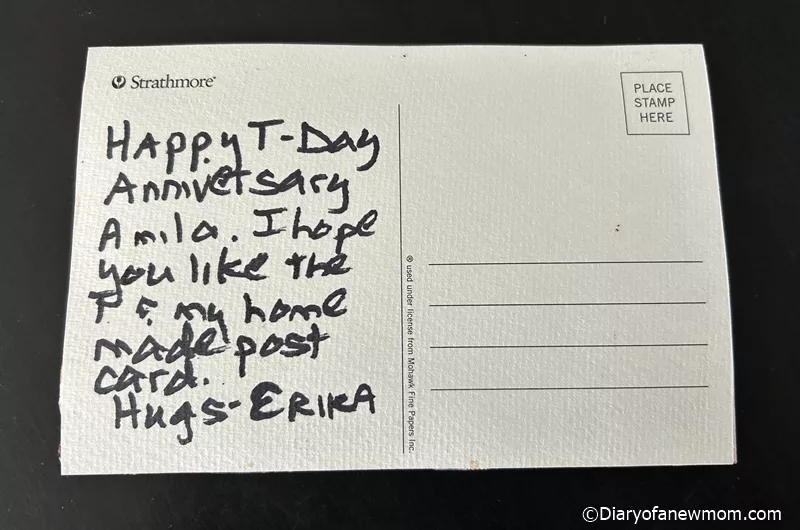 Strathmore®
PLACE
STAMP
HERE
Happy T-Day
Anniversary
Amila. I hope
you like the
T & my home
made post
card.
Hugs- ERIKA
® used under license from Mohawk Fine Papers Inc.
©Diaryofanewmom.com